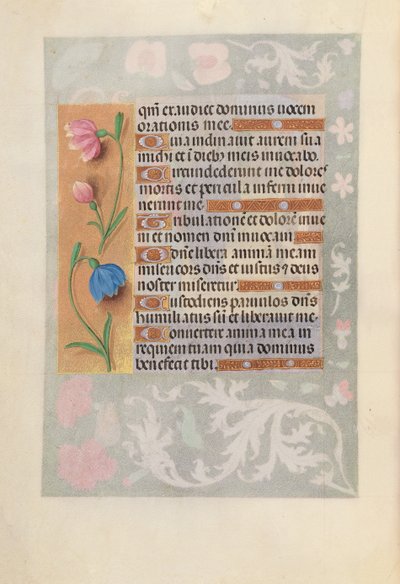 qm̄ exaudiet dominus uocem
orationis mee.
Quia inclinauit aurem suā
michi et ī dieb⁹ meis inuocabo.
Circundederunt me dolores
mortis et pericula inferni inue
nerunt me.
Tribulationē et dolorē inue
ni et nomen dn̄i inuocaui.
O dn̄e libera animā meam
misericors dn̄s et iustus ⁊ deus
noster miseretur.
Custodiens paruulos dn̄s
humiliatus sū et liberauit me.
Conuertere anima mea in
requiem tuam quia dominus
benefecit tibi.